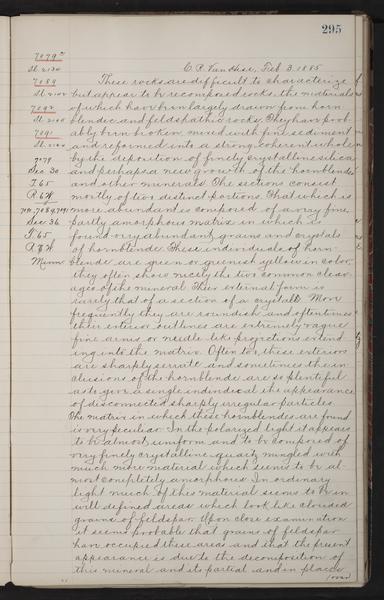 295
C. R. Vanhise, Feb 3. 1885.
7079
Sl. 2130
7089
Sl. 2102
7092
Sl. 2100
7091
Sl. 2144
7079
Sec 30
T. 65
R. 6 W
7091, 7089, 7091
Sec 36
T. 65
R. 7 W
Minn
These rocks are difficult to characterize
but appear to be recomposed rocks, the materials
of which have been largely drawn from horn
blendic and feldspathic rocks. They have prob
ably been broken, mixed with fine sediment
and reformed into a strong coherent whole
by the deposition of finely crystalline silica
and perhaps a new growth of the hornblende
and other minerals. The sections consist
mostly of two distinct portions. That which is
more abundant is composed of a very fine,
partly amorphous matrix in which is
found very abundant grains and crystals
of hornblende. These individuals of horn
blende are green or greenish yellow in color,
they often show nicely the two common cleav
ages of the mineral. Their external form is
rarely that of a section of a crystal. More
frequently they are roundish and oftentimes
their exterior outlines are extremely vague
fine arms or needle-like projections extend
ing into the matrix. Often too, these exteriors
are sharply serrate and sometimes the in
clusions of the hornblende are so plentiful
as to give a single individual the appearance
of disconnected sharply irregular particles.
The matrix in which these hornblendes are found
is very peculiar. In the polarized light it appears
to be almost uniform and to be composed of
very finely crystalline quartz mingled with
much more material which seems to be al-
most completely amorphous. In ordinary
light much of this material seems to be in
well defined areas which look like clouded
grains of feldspar. Upon close examination
it seems probable that grains of feldspar
have occupied these areas and that the present
appearance is due to the decomposition of
this mineral and its partial and in places
(over)